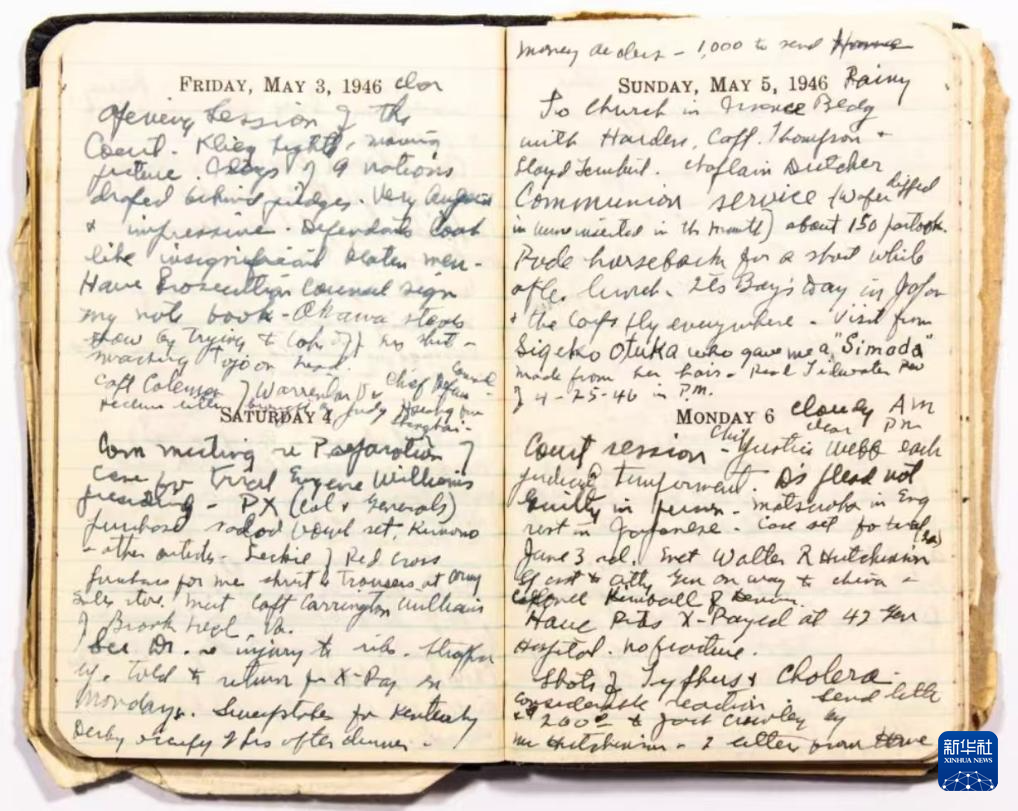 FRIDAY, MAY 3, 1946 clear
Opening Session of the
Court. Klieg lights, moving
picture. Flags of 9 nations
draped behind judges. Very August
& impressive. Defendants look
like insignificant beaten men.
Have Prosecution Counsel sign
my note book - Okawa steals
show by trying to take off his shirt -
smacking Tojo on head.
Capt Coleman of Warrenton Va Chief Defense Counsel.
Receive letter Judy
Shanghai.
SATURDAY 4
Com meeting re Preparation of
case for trial Eugene Williams
presiding - PX (Col & Generals)
purchase salad bowl set, kimono
& other articles - Leckie of Red Cross
purchases for me shirt & trousers at army
sales store. Met Capt Carrington Williams
of Brook Neal, Va.
See Dr. re injury to ribs. Strapped
up. told to return for X-Ray on
Monday. Sweepstakes for Kentucky
Derby occupy us after dinner.
money orders - 1,000 to send Home
SUNDAY, MAY 5, 1946 Rainy
To Church in Finance Bldg
with Harders, Capt. Thompson &
Lloyd. Chaplain Dutcher
Communion service (wafer dipped
in wine inserted in the mouth) about 150 partook.
Rode horseback for a short while
after lunch. Its Boy's Day in Japan
& the Carps fly everywhere - Visit from
Sigeko Otuka who gave me a "Simada"
made from her hair - Read Tidewater Rev
of 4-25-46 in P.M.
MONDAY 6 cloudy AM
clear PM
Court session - Chief Justice Webb each
judicial. Ds plead not
Guilty in person - Matsuoka in Eng
rest in Japanese. Case set for trial
June 3rd. Met Walter R Hutchinson
asst to atty Gen on way to China -
Colonel Kimball & Devan.
Have Ribs X-Rayed at 42 Gen
Hospital. no fracture.
Shots of Typhus & Cholera -
considerable reaction. Send letter
& $200 to Jack Crowley by
Mr Hutchinson - 2 letters from Home
新华社
XINHUA NEWS